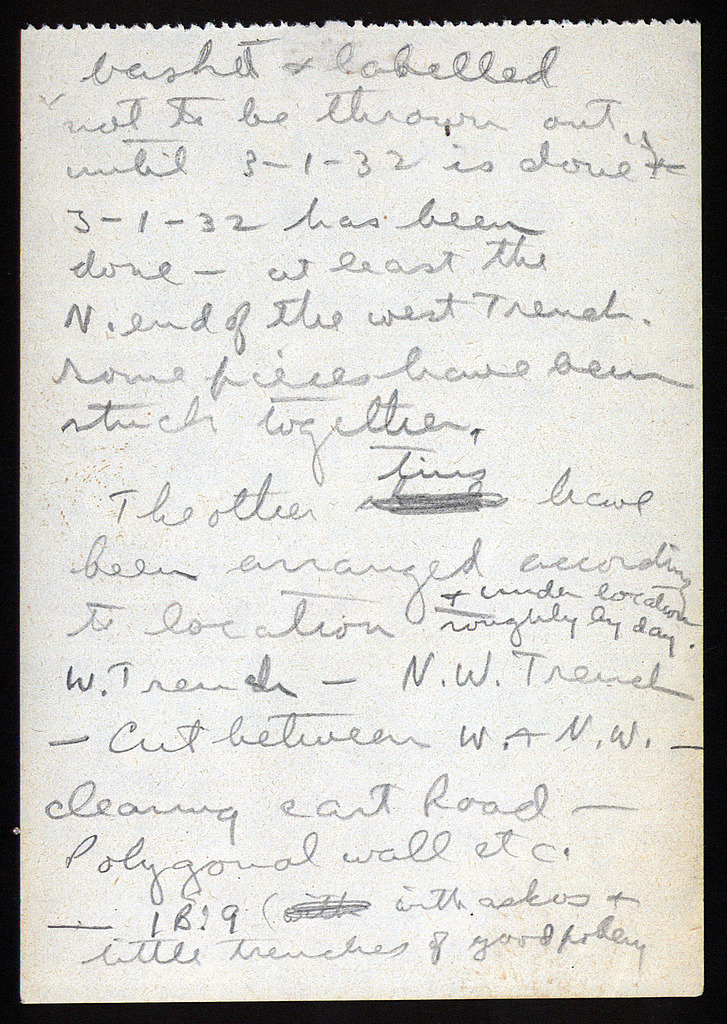 basket & labelled
not to be thrown out
until 3-1-32 is done &
3-1-32 has been
done — at least the
N. end of the west Trench.
some pieces have been
stuck together.
tins
The other have
been arranged according
& under location
to location roughly by day.
W. Trench — N.W. Trench
— Cut between W. + N.W. —
clearing cart Road —
Polygonal wall etc.
— 1B?9 (with askos &
little trenches of good pottery